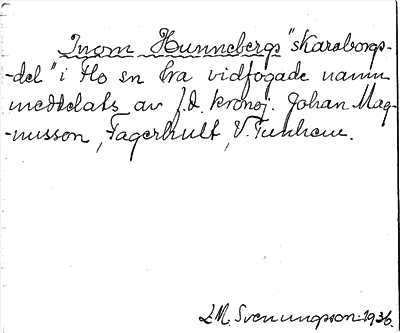 Inom Hunnebergs "Skaraborgs-
-del" i Flo sn bra vidfogade namn
meddelats av f.d. kronoj. Johan Mag-
-nusson, Fagerhult, V. Tunhem.
L M. Svenungsson 1936.